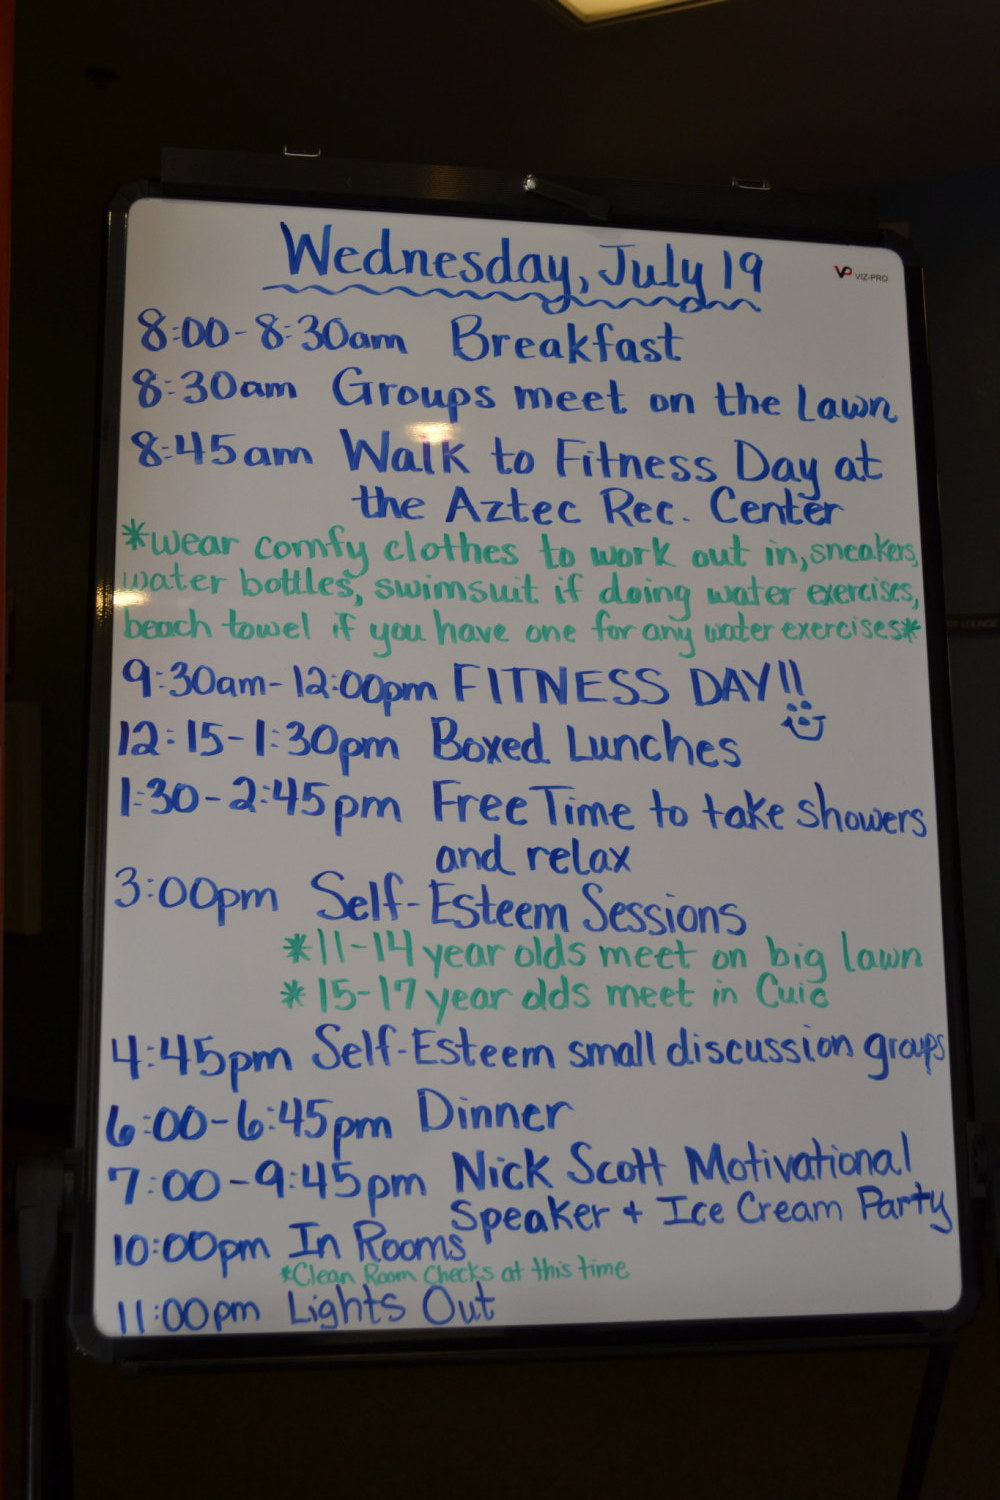 Wednesday, July 19
VP VIZ-PRO
8:00-8:30am Breakfast
8:30am Groups meet on the Lawn
8:45am Walk to Fitness Day at
the Aztec Rec. Center
*wear comfy clothes to work out in, sneakers,
water bottles, swimsuit if doing water exercises,
beach towel if you have one for any water exercises*
9:30am-12:00pm FITNESS DAY!!
12:15-1:30pm Boxed Lunches
1:30-2:45pm Free Time to take showers
and relax
3:00pm Self-Esteem Sessions
*11-14 year olds meet on big lawn
*15-17 year olds meet in Cuic
4:45pm Self-Esteem small discussion groups
6:00-6:45pm Dinner
7:00-9:45pm Nick Scott Motivational
Speaker + Ice Cream Party
10:00pm In Rooms
*Clean Room Checks at this time
11:00pm Lights Out